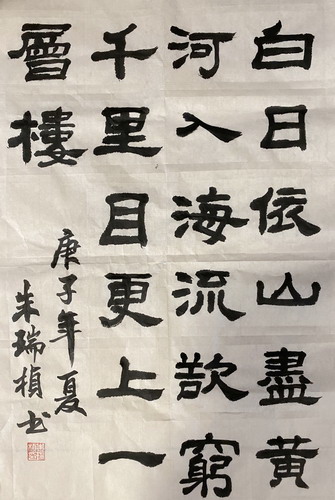 白日依山盡黄
河入海流欲窮
千里目更上一
層樓
庚子年夏
朱瑞楨书